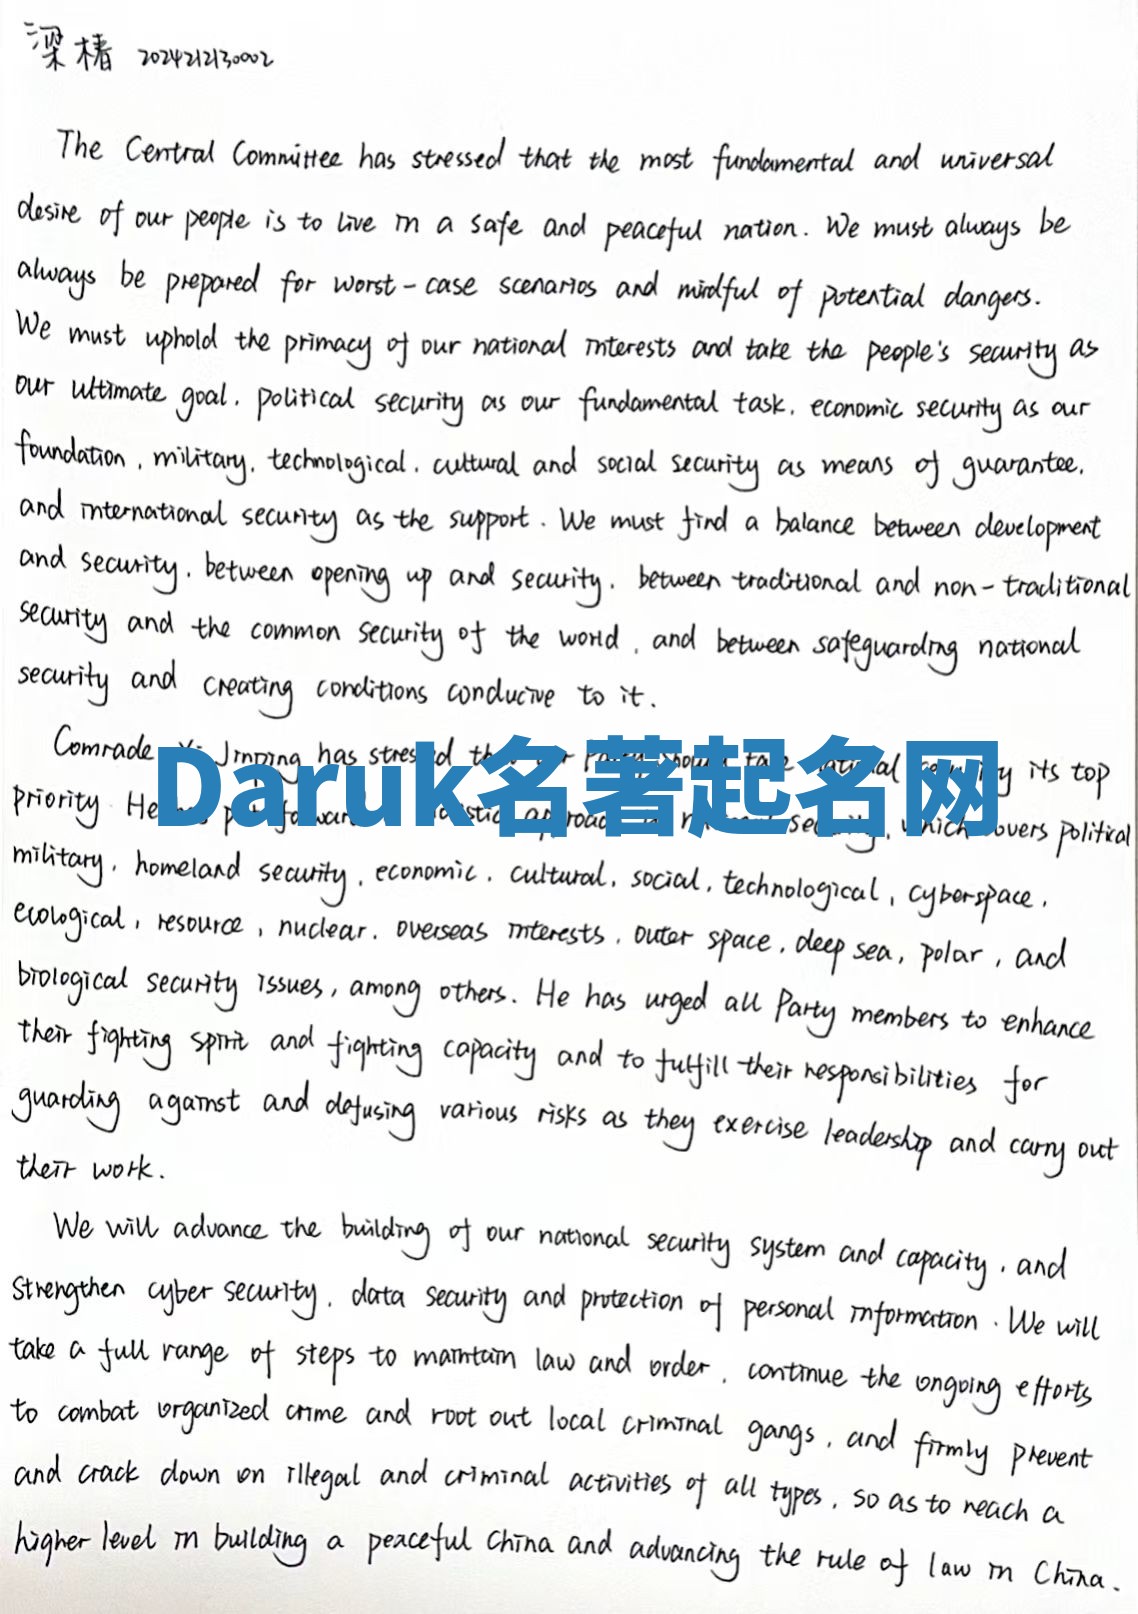 梁椿 2024212130002
The Central Committee has stressed that the most fundamental and universal
desire of our people is to live in a safe and peaceful nation. We must always be
always be prepared for worst-case scenarios and mindful of potential dangers.
We must uphold the primacy of our national interests and take the people's security as
our ultimate goal, political security as our fundamental task, economic security as our
foundation, military, technological, cultural and social security as means of guarantee,
and international security as the support. We must find a balance between development
and security, between opening up and security, between traditional and non-traditional
security and the common security of the world, and between safeguarding national
security and creating conditions conducive to it.
Comrade Jinping has stressed its top
Daruk名著起名网
priority. He security, which covers political
military, homeland security, economic, cultural, social, technological, cyberspace,
ecological, resource, nuclear, overseas interests, outer space, deep sea, polar, and
biological security issues, among others. He has urged all Party members to enhance
their fighting spirit and fighting capacity and to fulfill their responsibilities for
guarding against and defusing various risks as they exercise leadership and carry out
their work.
We will advance the building of our national security system and capacity, and
strengthen cyber security, data security and protection of personal information. We will
take a full range of steps to maintain law and order, continue the ongoing efforts
to combat organized crime and root out local criminal gangs, and firmly prevent
and crack down on illegal and criminal activities of all types, so as to reach a
higher level in building a peaceful China and advancing the rule of law in China.